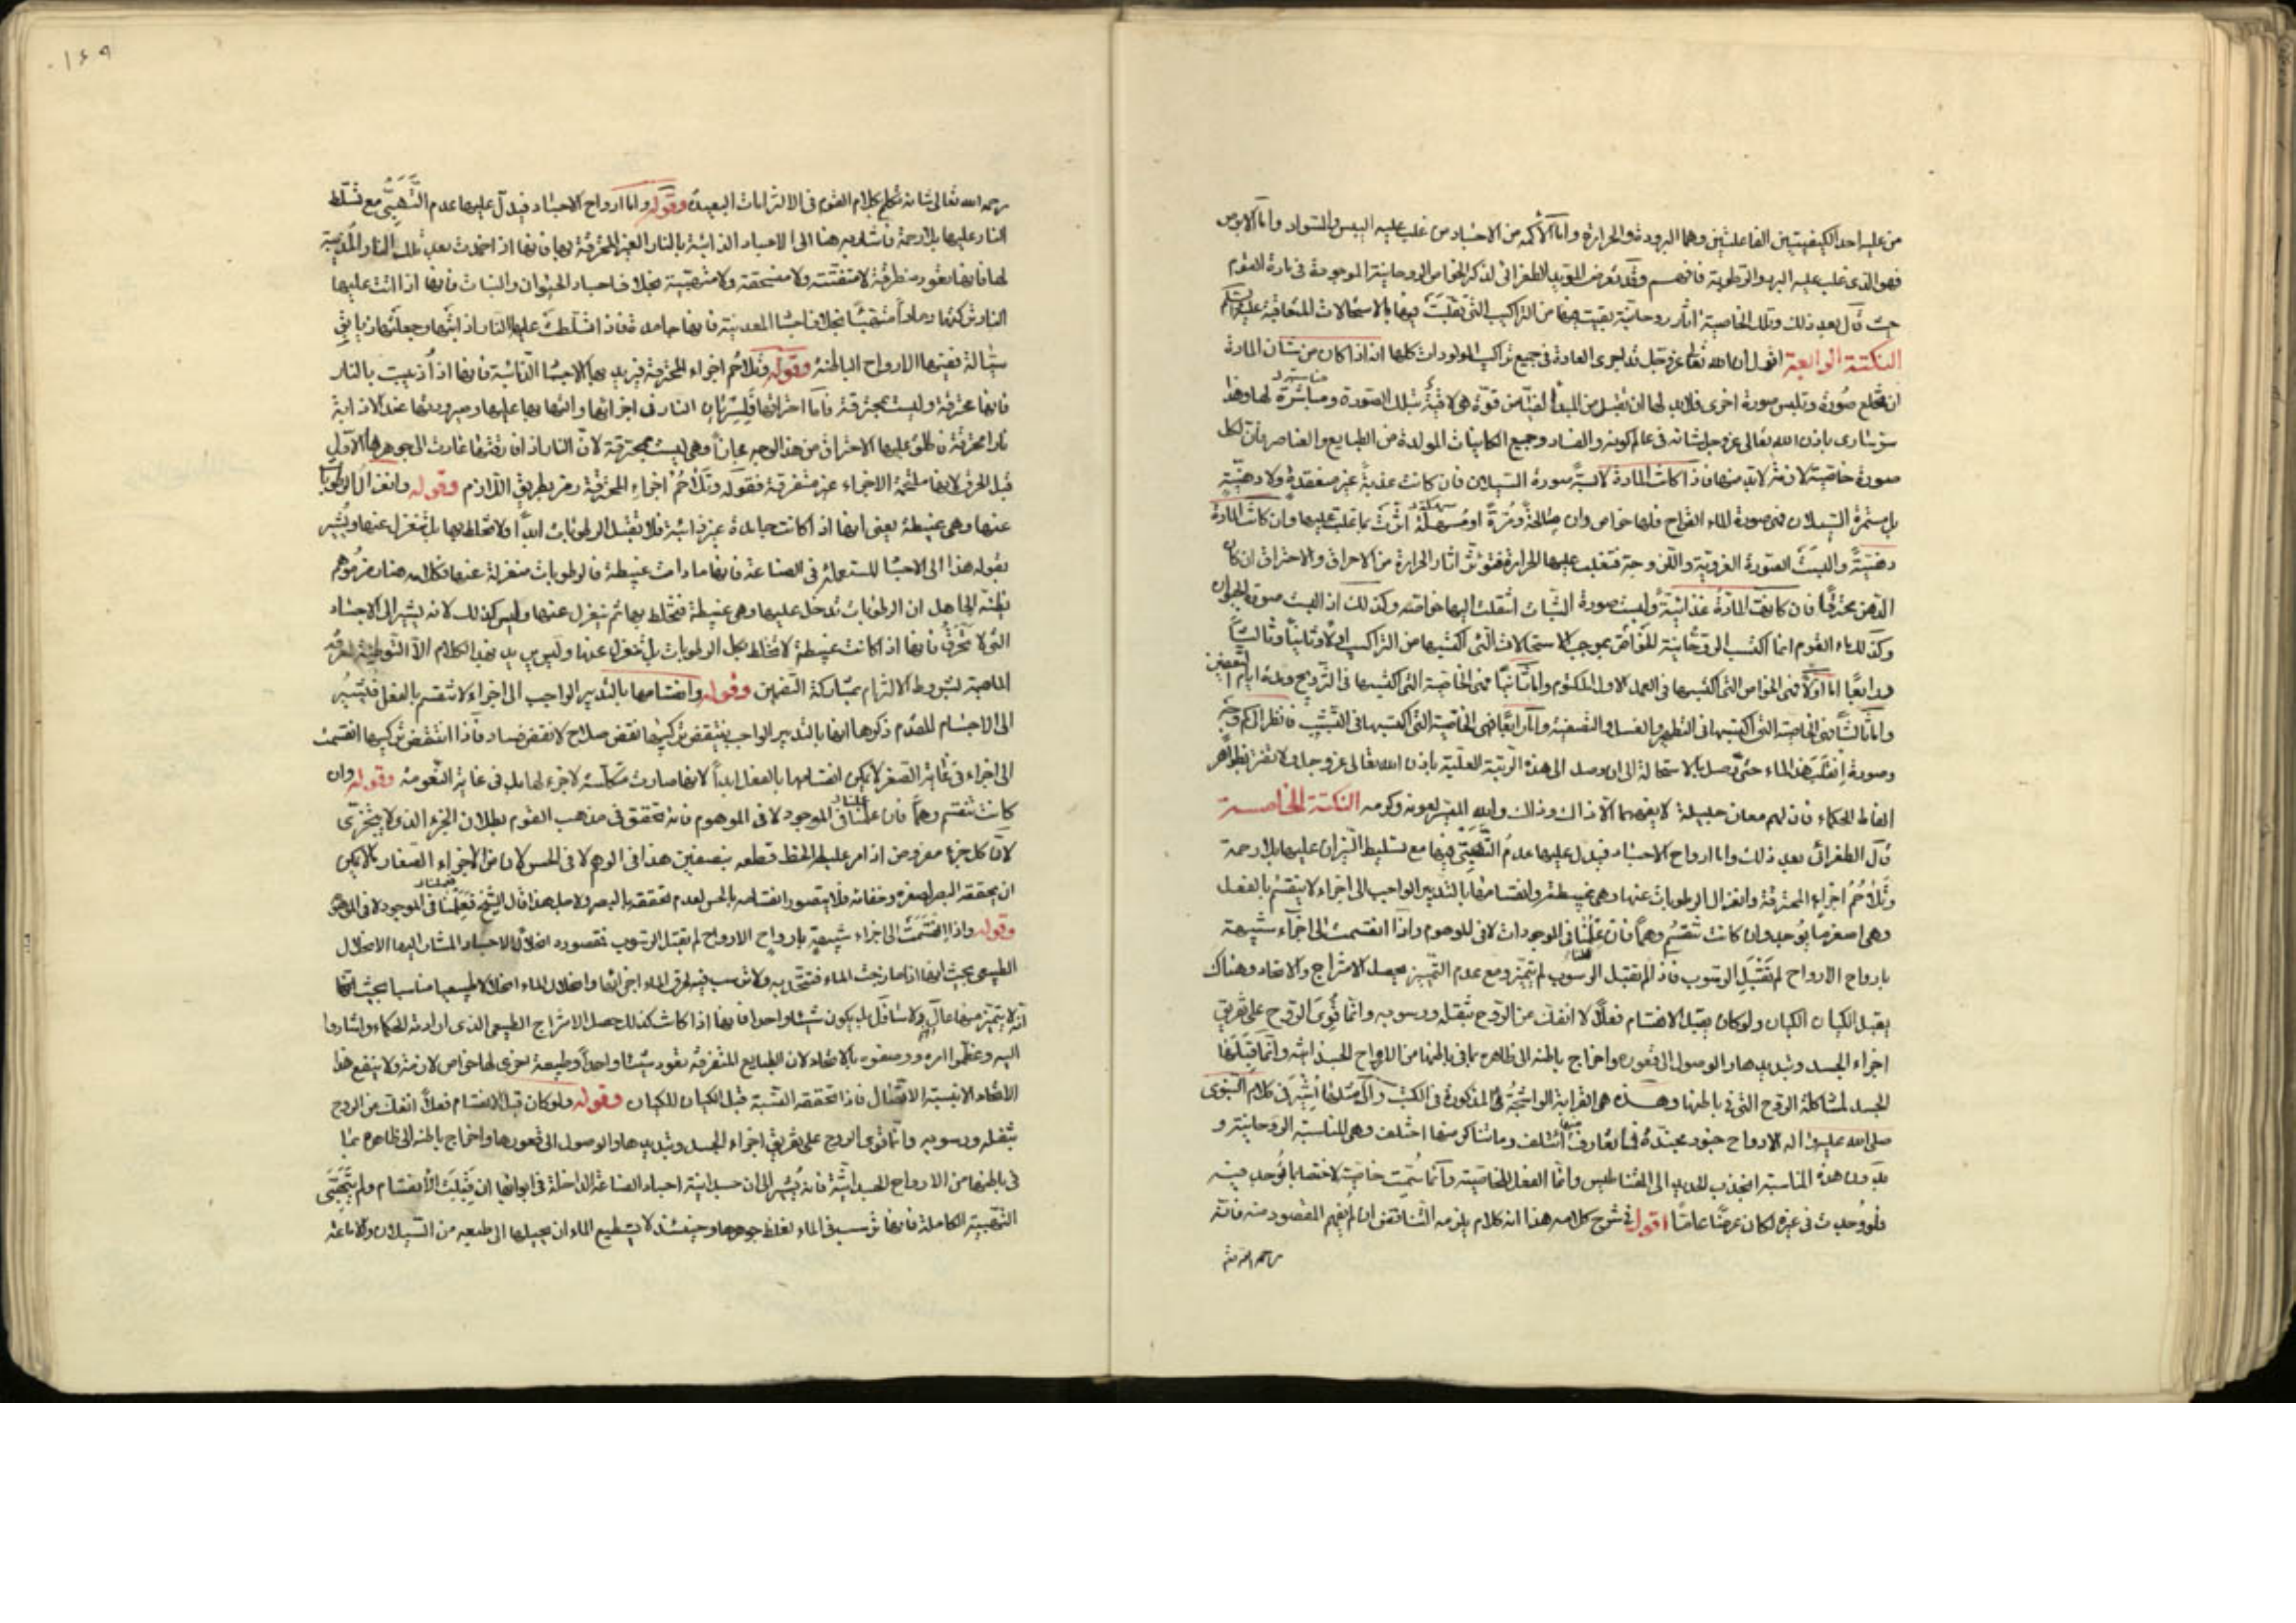 من عليه احد الكيفيتين الفاعلتين وهما البرودة والحرارة واما الأكمه من الاجساد من غلب عليه اليبس والسواد واما الابرص
فهو الذى غلب عليه البرد والرطوبة فافهم وقد تعرض المؤيد الطغرائى لذكر الخواص الروحانية الموجودة فى مادة القوم
حيث قال بعد ذلك وتلك الخاصية اثار روحانية بقيت فيها من التراكيب التى تقلبت فيها بالاستحالات المتعاقبة عليها
النكتة الرابعة اقول ان الله تعالى عز وجل قد اجرى العادة فى جميع تراكيب المولودات كلها انه اذا كان من شان المادة
ان تخلع صورة وتلبس صورة اخرى فلابد لها ان تقبل من قوة هى لائقة بتلك الصورة ومباشرة لها وهذا
سر سارى باذن الله تعالى عز وجل شانه فى عالم كونه والفساد وجميع الكاينات المولدة من الطبايع والعناصر بأن لكل
صورة خاصية لازمة لابد منها فاذا كانت المادة لابسة صورة السيلان فان كانت عذبة غير منعقدة ولا دهنية
بل مستمرة السيلان فهى صورة الماء القراح فلها خواص وان مالحة ومرة او مسهلة اثرت بما غلب عليها وان كانت المادة
دهنية والبست الصورة الغروية واللزوجة فتغلب عليها الحرارة فتؤثر اثار الحرارة من الاحراق والاحتراق ان كان
الدهن محترقا فان كانت المادة غذائية ولبست صورة النبات انتقلت اليها خواصه وكذلك اذا لبست صورة الحيوان
وكذلك ماء القوم انما اكتسب الروحانية للخواص بموجب الاستحالات التى اكتسبها من التراكيب اولا وثانيا وثالثا
ورابعا اما اولا فهى الخواص التى اكتسبها فى العمل الاول المكتوم واما ثانيا فهى الخاصية التى اكتسبها فى التزويج ومدة ايام التعفين
واما ثالثا فهى الخاصية التى اكتسبها فى التطهير والغسل والتصفية واما رابعا فهى الخاصية التى اكتسبها فى التشبيب فانظر الى كم وجه
وصورة انقلب هذا الماء حتى وصل بالاستحالة الى ان وصل الى هذه الرتبة العلية باذن الله تعالى عز وجل ولا تغتر بظواهر
الفاظ الحكماء فان لهم معان جليلة لا يفهمها الا ذاك وذاك والله الميسر بعونه وكرمه النكتة الخامسة
قال الطغرائى بعد ذلك واما ارواح الاجساد فيدل عليها عدم التهبّى فيها مع تسليط النيران عليها بلا رحمة
وتلاحم اجزاء المحترقة وانغزال الرطوبات عنها وهى عبيطة وانقسامها بالتدبير الواجب الى اجزاء لا ينقسم بالفعل
وهى اصغر ما يوجد وان كانت تنقسم وهما فان علمنا فى الموجودات لا فى الموهوم واذا انقسمت الى اجزاء شبيهة
بارواح الارواح لم تقبل الرسوب فاذا لم تقبل الرسوب لم تتميز ومع عدم التمييز يحصل الامتزاج والاتحاد وهناك
يقبل الكيان الكيان ولو كان يقبل الانقسام فعلا لا انفك من الروح بثقله ورسوبه وانما قوى الروح على تفريق
اجزاء الجسد وتبديدها والوصول الى قعوره واخراج باطنه الى ظاهره بما فى باطنها من الارواح الجسدانية وانما قبلها
الجسد لمشاكلة الروح التى فى باطنها وهذه هى القرابة الواشجة المذكورة فى الكتب فى كلام النبوى
صلى الله عليه واله الارواح جنود مجندة فما تعارف منها ائتلف وما تناكر منها اختلف وهى المناسبة الروحانية و
بدون هذه المناسبة انجذب الحديد الى المغناطيس وانما الفعل للخاصية وانما سميت خاصية لاختصاصها بما توجد فيه
فلو وجدت فى غيره لكان عرضا عاما اقول فى شرح كلامه هذا انه كلام يلزمه التناقض ان لم يفهم المقصود منه فانه
رحمه الله تعالى
١٤٩
رحمه الله تعالى شانه تكلم بكلام القوم فى الالتزامات البعيدة وقوله واما ارواح الاجساد فيدل عليها عدم التهبّى مع تسلط
النار عليها بلا رحمة فاشار به هنا الى الاجساد الذائبة بالنار الغير المحترقة بها فانها اذا خمدت بعد تلك النار المذيبة
لها فانها تعود منطرقة لا متفتتة ولا منسحقة ولا متهبية بخلاف اجساد الحيوان والنبات فانها اذا اتت عليها
النار تركتها رمادا متهبيا بخلاف اجساد المعدنية فانها جامدة فاذا تسلطت عليها النار اذابتها وجعلتها زيابق
سيالة بعينها الارواح الباطنة وقوله وتلاحم اجزاء المحترقة فيريد بها الاجساد الذائبة فانها اذا أذيبت بالنار
فانها محترقة وليست بمحترقة فاما احتراقها فلسريان النار فى اجزائها والتهابها عليها وصيرورتها عند الاذابة
نارا محترقة فاطلق عليها الاحتراق من هذا الوجه مجازا وهى ليست بمحترقة لان النار اذا فارقتها عادت الى جوهرها الاول
قبل الحرق لانها ملتحمة الاجزاء غير متفرقة فقوله وتلاحم اجزاء المحترقة رمز بطريق اللازم وقوله وانغزال الرطوبات
عنها وهى عبيطة يعنى انها اذا كانت جامدة غير ذائبة فلا تقبل الرطوبات ابدا ولا تختلط بها بل تنغزل عنها ويشير
بقوله هذا الى الاجساد المستعملة فى الصناعة فانها ما دامت عبيطة فالرطوبات منغزلة عنها فكلامه هنا رمز موهم
يظنه الجاهل ان الرطوبات تدخل عليها وهى عبيطة فتختلط بها ثم تنغزل عنها وليس كذلك لانه يشير الى الاجساد
التى لا تحترق فانها اذا كانت عبيطة لا تختلط بكل الرطوبات بل تنغزل عنها وليس يريد بهذا الكلام الا التوطية لمعرفة
الماهية لشروط الالتزام بمشاركة التضمين وقوله وانقسامها بالتدبير الواجب الى اجزاء لا تنقسم بالفعل فيشير
الى الاجسام المقدم ذكرها انها بالتدبير الواجب ينتقض تركيبها نقض صلاح لا نقض فساد فاذا انتقض تركيبها انقسمت
الى اجزاء فى غاية الصغر لا يمكن انقسامها بالفعل ابدا لانها صارت متكلسة لا جزء لها بل فى غاية النعومة وقوله وان
كانت تنقسم وهما فان علمنا فى الموجود لا فى الموهوم فانه تحقق فى مذهب القوم بطلان الجزء الذى لا يتجزى
لان كل جزء مفروض اذا مر عليه الخط قطعه بنصفين هذا فى الوهم لا فى الحس لان من الاجزاء الصغار ما لا يمكن
ان يحققه البصر لصغره وخفائه فلا يتصور انقسامه بالحس لعدم تحققه بالبصر ولاجل هذا قال الشيخ فعلمنا فى الموجود لا فى الموهوم
وقوله واذا انقسمت الى اجزاء شبيهة بارواح الارواح لم تقبل الرسوب فقصوده انحلال الاجساد المشار اليها الانحلال
الطبيعى بحيث انها اذا مازجت الماء فتتحد به ولا ترسب فيه لفرق الماء اجزائها وانحلال الماء انحلالا طبيعيا مناسبا بحيث انها
لا يتميز منها عال ولا سافل بل يكون شيئا واحدا فانها اذا كانت كذلك حصل الامتزاج الطبيعى الذى ارادته الحكماء واشاروا
اليه وعظموا امره ووصفوه بالاتحاد لان الطبايع المتفرقة تعود شيئا واحدا وطبيعة اخرى لها خواص لازمة ولا ينتفع هذا
الاتحاد الا بنسبة الاتصال فاذا تحققه النسبة قبل الكيان للكيان وقوله ولو كان قبل الانقسام فعلا انفك من الروح
بثقله ورسوبه وانما قوى الروح على تفريق اجزاء الجسد وتبديدها والوصول الى قعورها واخراج باطنه الى ظاهره بما
فى باطنها من الارواح الجسدانية فانه يشير الى ان جسدانية اجساد الصناعة الداخلة فى ابوابها ان قبلت الانقسام ولم تتهبّى
التهبية الكاملة فانها ترسب فى الماء لغلظ جوهرها وحينئذ لا يستطيع الماء ان يحيلها الى طبعه من السيلان والاماعة